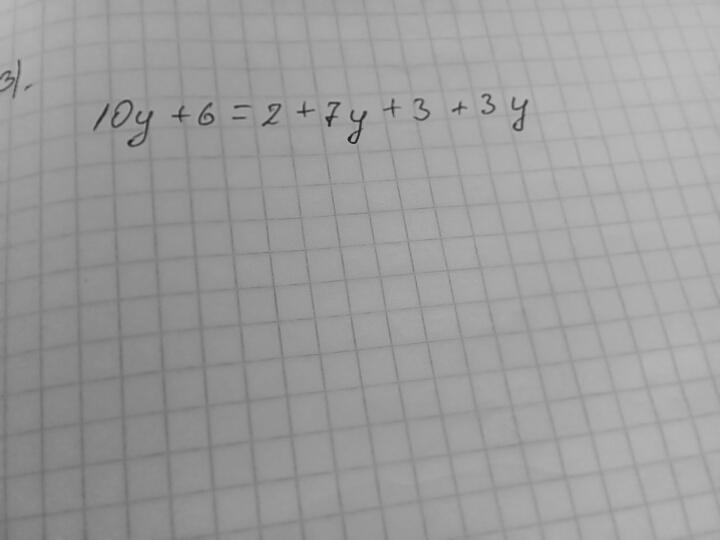 3).
10y + 6 = 2 + 7y + 3 + 3y